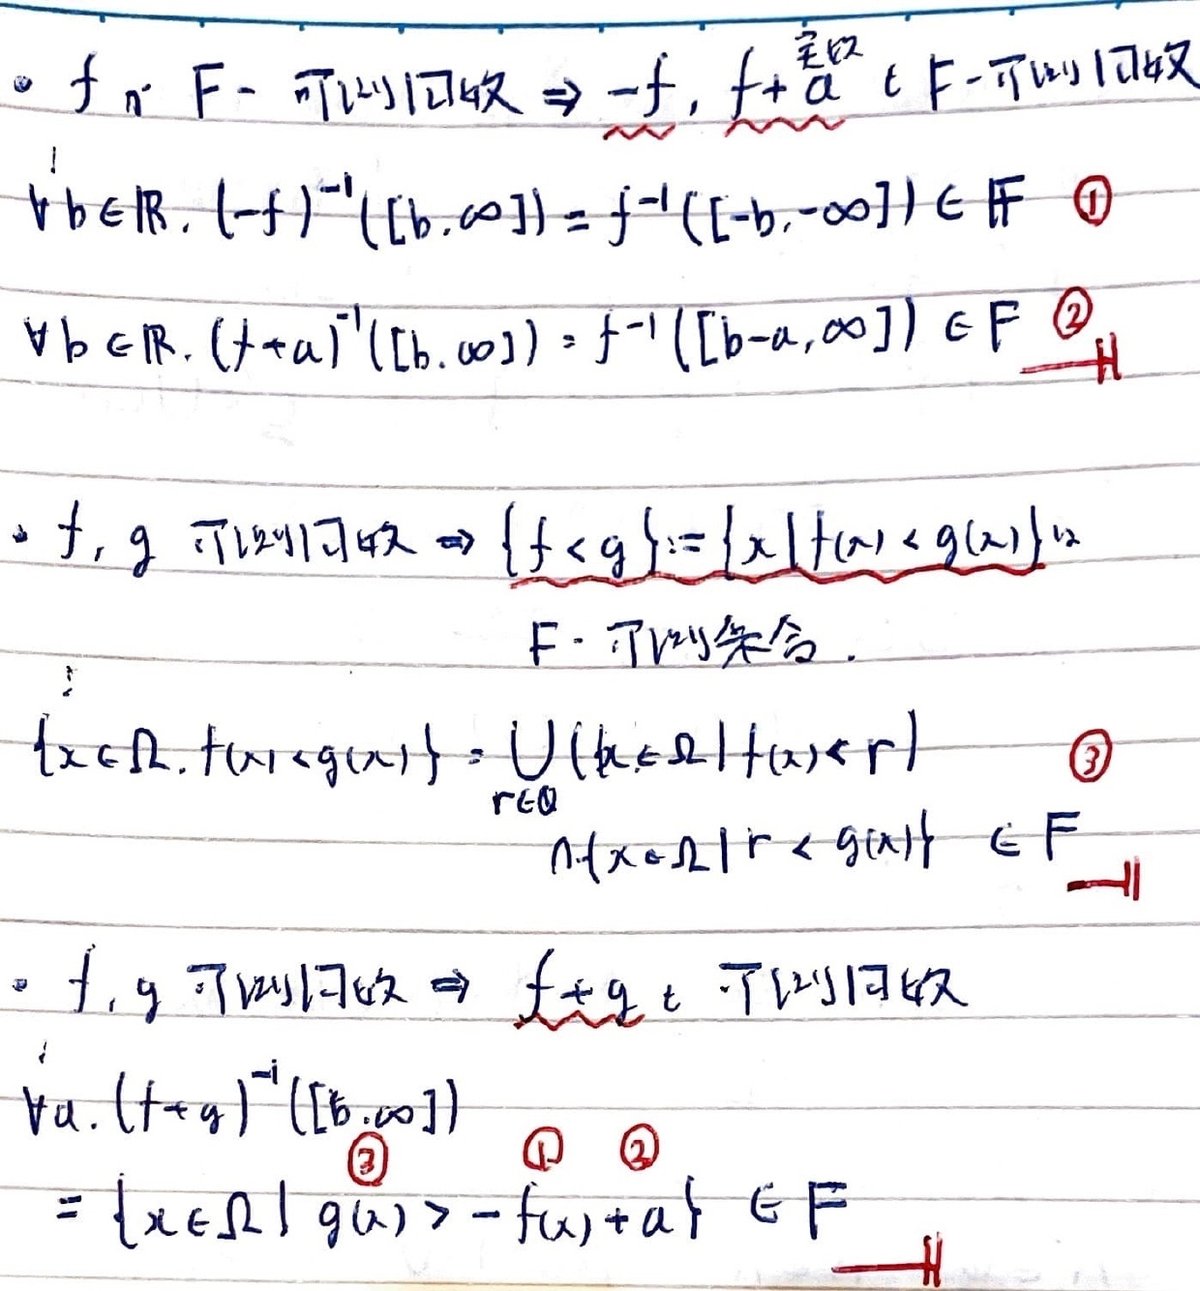 ・f が F-可測関数 ⇒ -f, f+a も F-可測関数
実数
∵
∀b∈ℝ. (-f)⁻¹([b.∞]) = f⁻¹([-b.-∞]) ∈ F ①
∀b∈ℝ. (f+a)⁻¹([b.∞]) = f⁻¹([b-a,∞]) ∈ F ②
・f, g 可測関数 ⇒ {f<g}:={x|f(x)<g(x)}は
F-可測集合.
∵
{x∈Ω. f(x)<g(x)} = ⋃ ({x∈Ω|f(x)<r) ③
r∈ℚ
∩{x∈Ω|r<g(x)} ∈ F
・f, g 可測関数 ⇒ f+g も 可測関数
∵
∀a. (f+g)⁻¹([b.∞])
③ ① ②
= {x∈Ω| g(x) > -f(x)+a} ∈ F